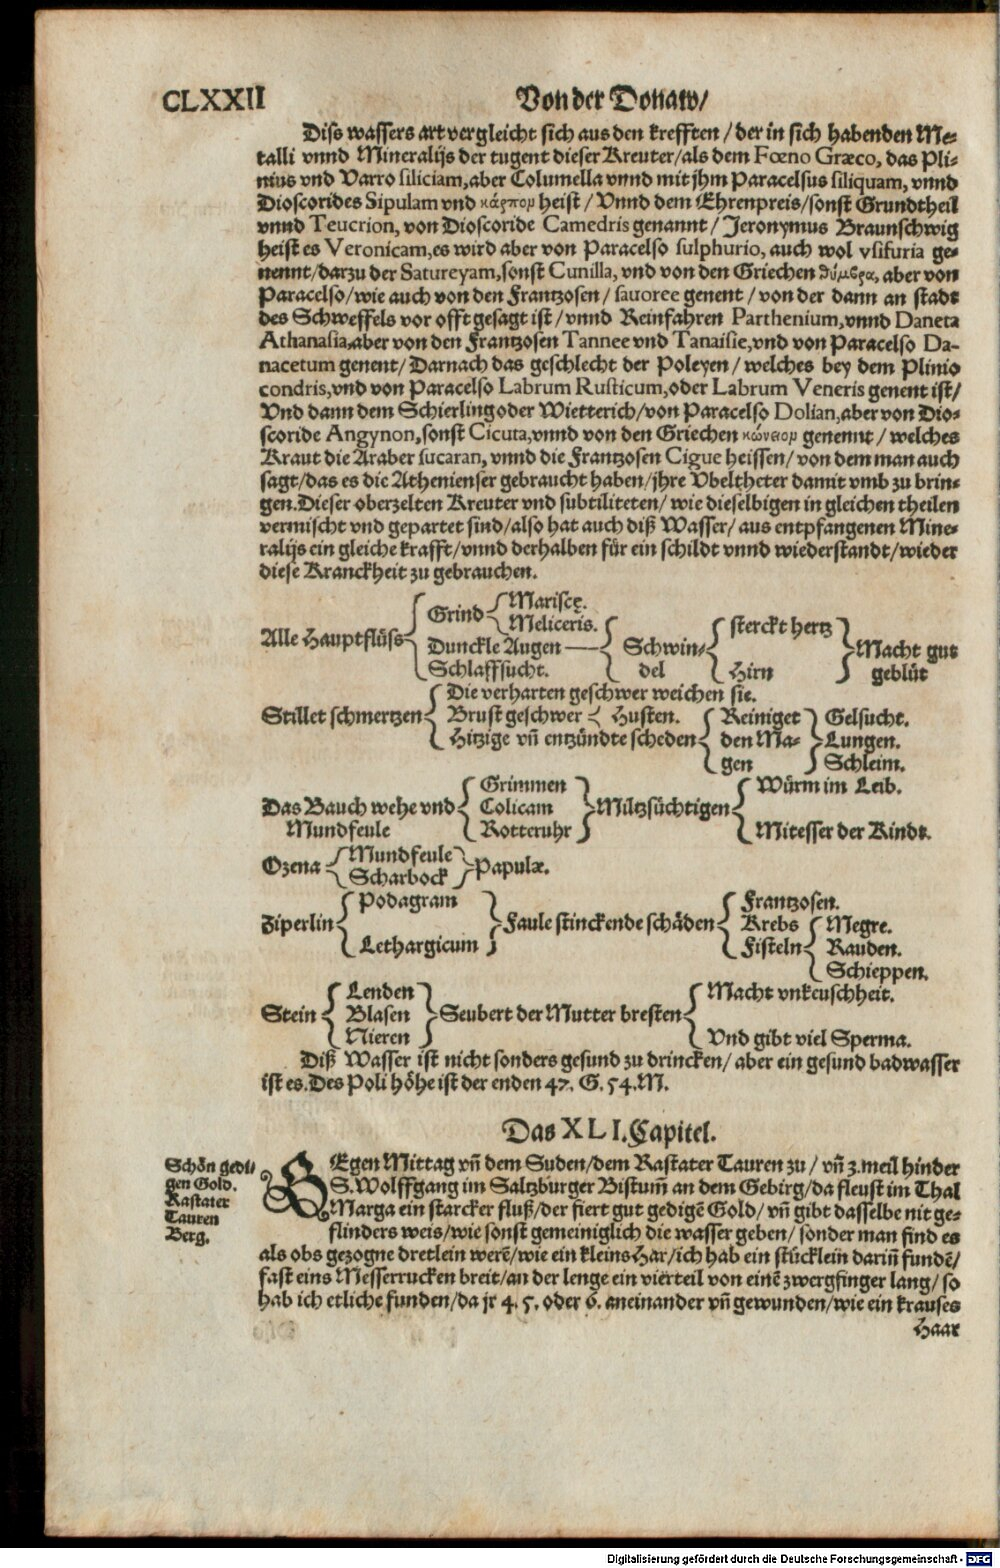 CLXXII Von der Donaw/
Diss wassers art vergleicht sich aus den krefften / der in sich habenden Me⸗
talli vnnd Mineralijs der tugent dieser Kreuter/als dem Fœno Græco, das Pli⸗
nius vnd Varro siliciam, aber Columella vnnd mit jhm Paracelsus siliquam, vnnd
Dioscorides Sipulam vnd κάρπομ heist / Vnnd dem Ehrenpreis/sonst Grundtheil
vnnd Teucrion, von Dioscoride Camedris genannt / Jeronymus Braunschwig
heist es Veronicam, es wird aber von Paracelso sulphurio, auch wol vsifuria ge⸗
nennt/darzu der Satureyam, sonst Cunilla, vnd von den Griechen θύμβρα, aber von
Paracelso/wie auch von den Frantzosen / savoree genent / von der dann an stadt
des Schweffels vor offt gesagt ist / vnnd Reinfahren Parthenium, vnnd Daneta
Athanasia, aber von den Frantzosen Tannee vnd Tanaisie, vnd von Paracelso Da-
nacetum genent/ Darnach das geschlecht der Poleyen / welches bey dem Plinio
condris, vnd von Paracelso Labrum Rusticum, oder Labrum Veneris genent ist/
Vnd dann dem Schierling oder Wietterich/von Paracelso Dolian, aber von Dio⸗
scoride Angynon, sonst Cicuta, vnnd von den Griechen κώνειομ genennt / welches
Kraut die Araber sucaran, vnnd die Frantzosen Cigue heissen/ von dem man auch
sagt/das es die Athenienser gebraucht haben/jhre Vbeltheter damit vmb zu brin⸗
gen. Dieser oberzelten Kreuter vnd subtiliteten / wie dieselbigen in gleichen theilen
vermischt vnd gepartet sind/also hat auch diß Wasser/ aus entpfangenen Mine⸗
ralijs ein gleiche krafft/vnnd derhalben für ein schildt vnnd wiederstandt/wieder
diese Kranckheit zu gebrauchen.
Alle Hauptflüss { Grind { Mariscę. Meliceris.
Dunckle Augen
Schlaffsucht. { Schwin⸗
del { sterckt hertz
Hirn } Macht gut
geblüt
Stillet schmertzen { Die verharten geschwer weichen sie.
Brust geschwer { Husten.
Hitzige vñ entzündte scheden { Reiniget
den Ma⸗
gen } Gelsucht.
Lungen.
Schleim.
Das Bauch wehe vnd
Mundfeule { Grimmen
Colicam
Rotteruhr } Miltzsüchtigen { Würm im Leib.
Mitesser der Kindt.
Ozena { Mundfeule
Scharbock } Papulæ.
Ziperlin { Podagram
Lethargicum } Faule stinckende schäden { Frantzosen.
Krebs
Fisteln { Megre.
Rauden.
Schieppen.
Stein { Lenden
Blasen
Nieren } Seubert der Mutter bresten { Macht vnkeuschheit.
Vnd gibt viel Sperma.
Diß Wasser ist nicht sonders gesund zu drincken/ aber ein gesund badwasser
ist es. Des Poli höhe ist der enden 47. G. 54. M.
Das XLI. Capitel.
Schön gedi⸗
gen Gold.
Rastater
Tauren
Berg.
GEgen Mittag vñ dem Suden/dem Rastater Tauren zu / vñ 3. meil hinder
S. Wolffgang im Saltzburger Bistum̃ an dem Gebirg/da fleust im Thal
Marga ein starcker fluß/der fiert gut gedigẽ Gold/ vñ gibt dasselbe nit ge⸗
flinders weis/wie sonst gemeiniglich die wasser geben/ sonder man find es
als obs gezogne dretlein werẽ/wie ein kleins Har/ich hab ein stücklein darin̄ fundẽ/
fast eins Messerrucken breit/an der lenge ein vierteil von einẽ zwergfinger lang/ so
hab ich etliche funden/da jr 4. 5. oder 6. aneinander vñ gewunden/wie ein krauses
Haar
Digitalisierung gefördert durch die Deutsche Forschungsgemeinschaft - DFG